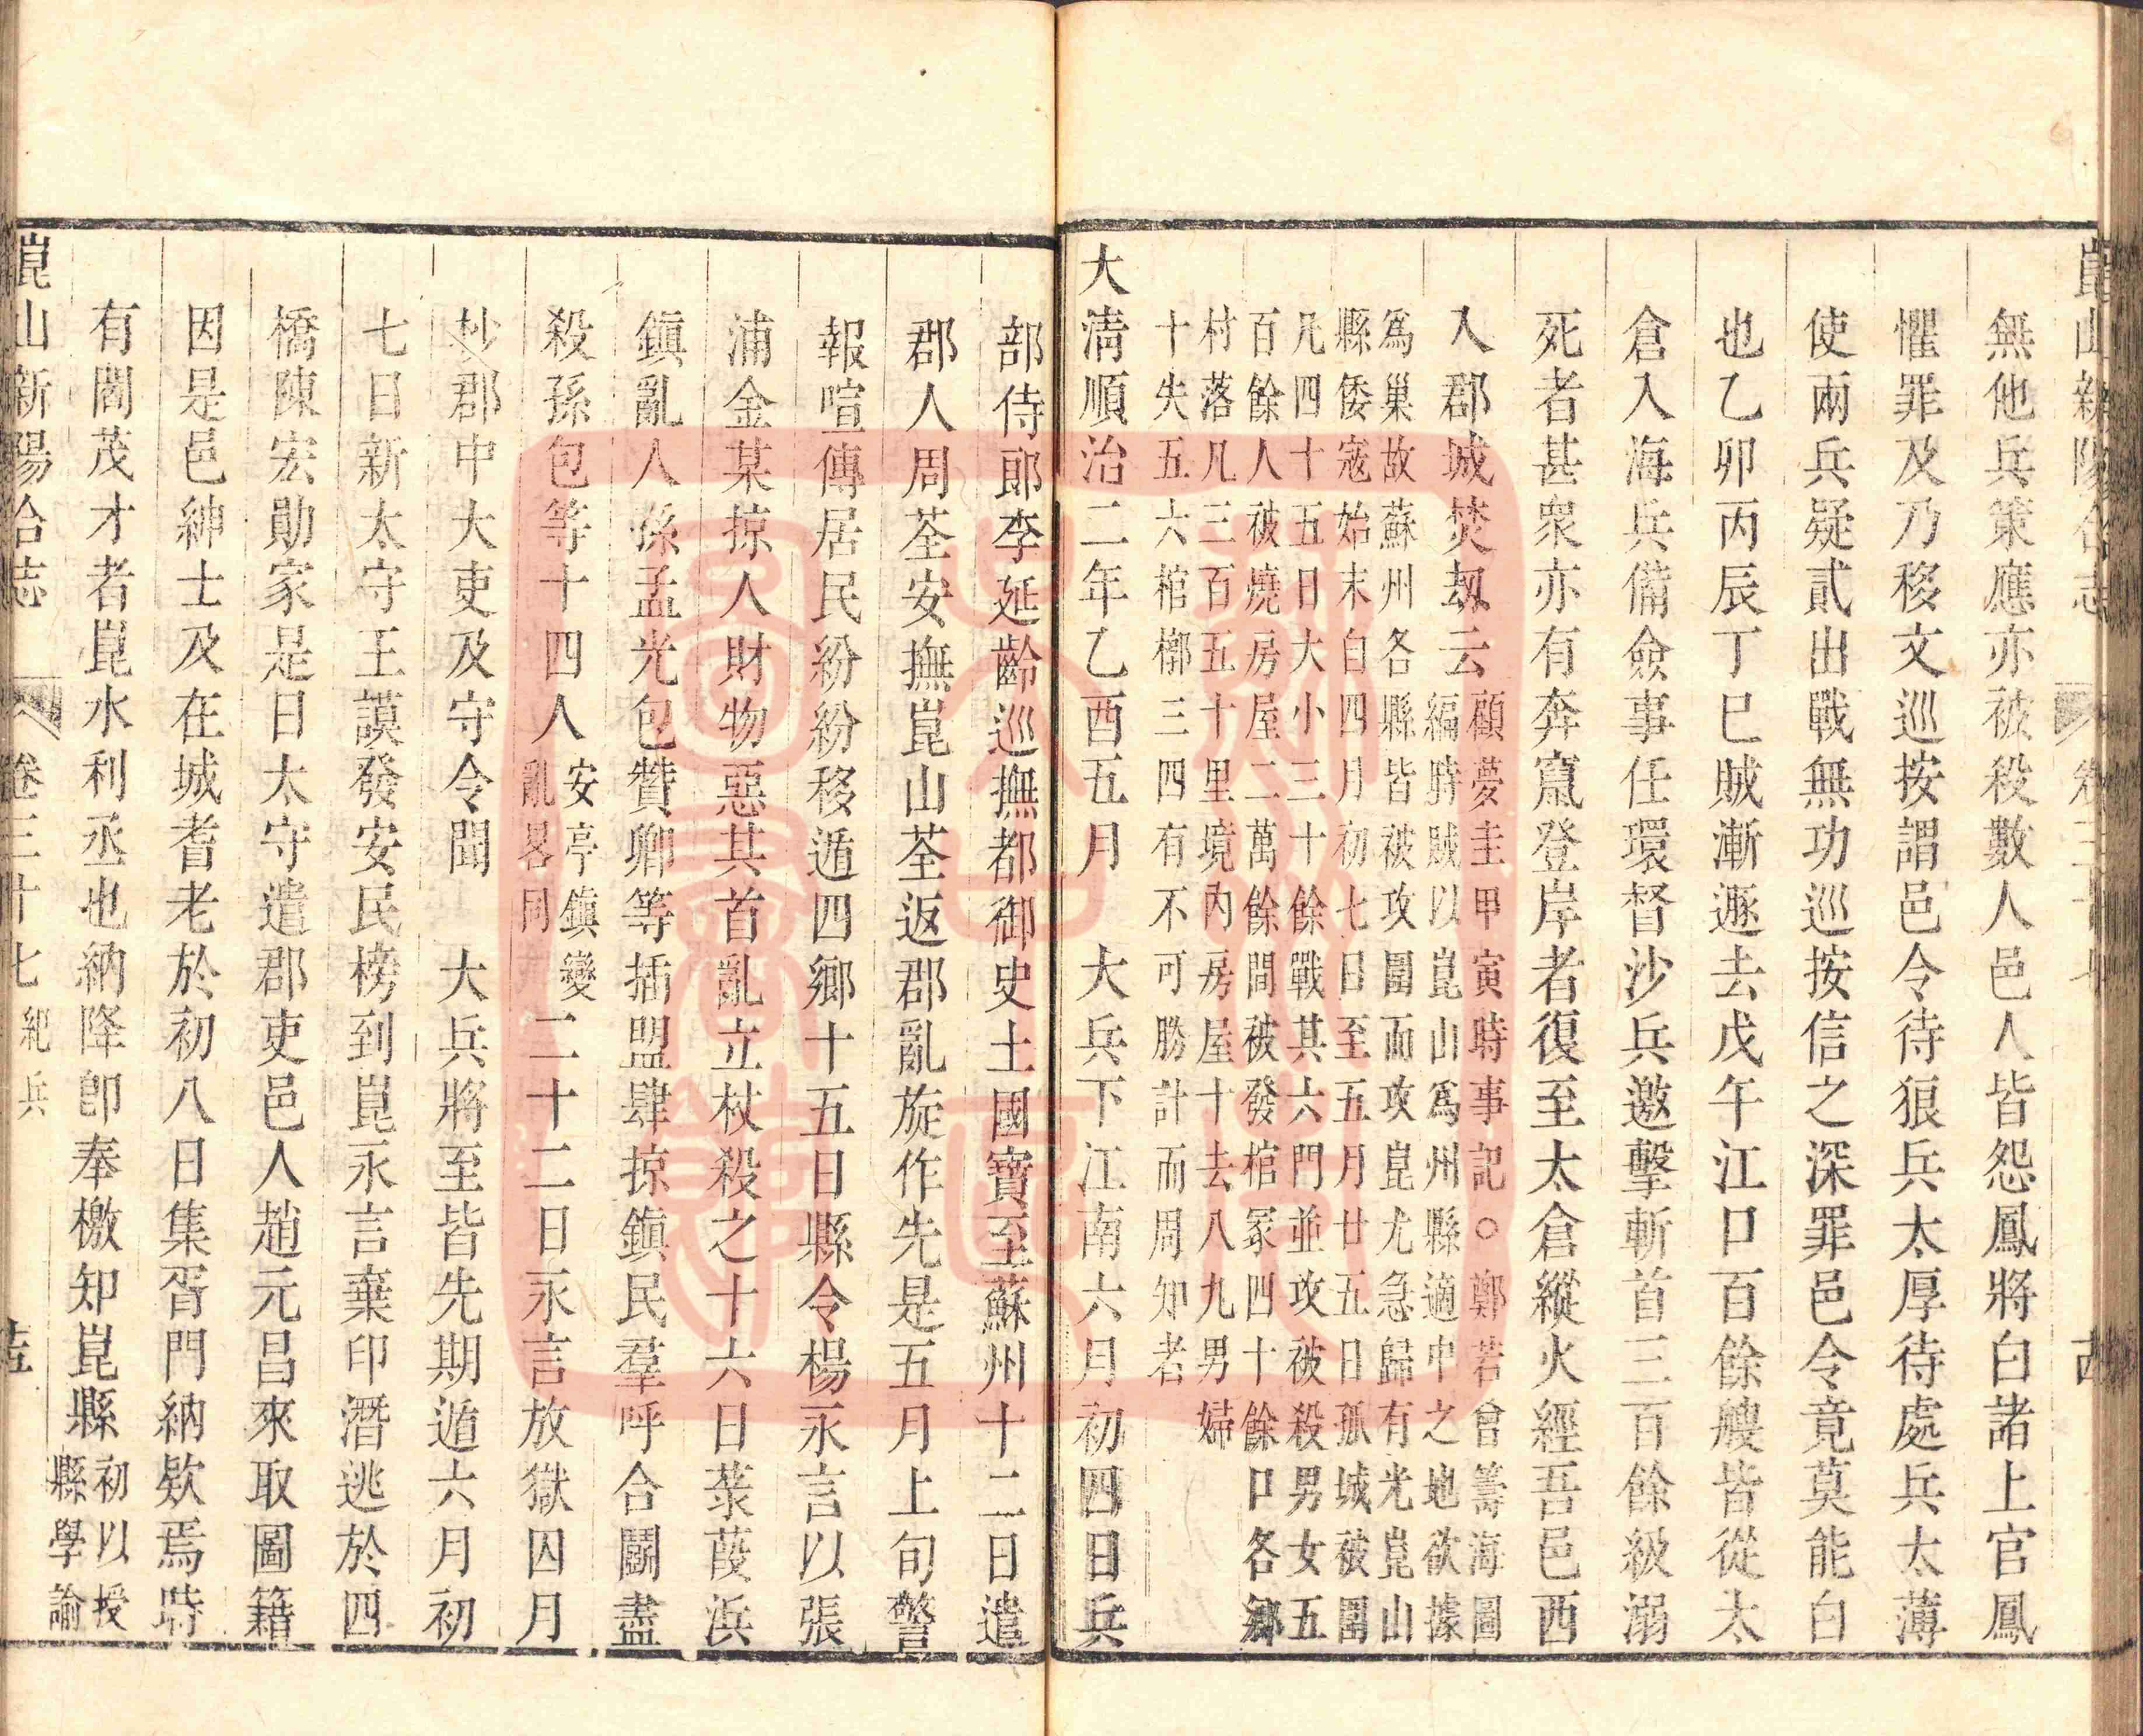 崑山新陽合志 卷三十七 古
無他兵策應亦被殺數人邑人皆怨鳳將白諸上官鳳
懼罪及乃移文巡按謂邑令待狼兵太厚待處兵太薄
使兩兵疑貳出戰無功巡按信之深罪邑令竟莫能白
也乙卯丙辰丁巳賊漸遯去戊午江口百餘艘皆從太
倉入海兵備僉事任環督沙兵邀擊斬首三百餘級溺
死者甚衆亦有奔竄登岸者復至太倉縱火經吾邑西
入郡城焚刼云
顧夢圭甲寅時事記○鄭若曾籌海圖
編時賊以崑山為州縣適中之地欲據
為巢故蘇州各縣皆被攻圍而攻崑尤急歸有光崑山
縣倭寇始末自四月初七日至五月廿五日孤城被圍
凡四十五日大小三十餘戰其六門並攻被殺男女五
百餘人被燒房屋二萬餘間被發棺冢四十餘口各鄉
村落凡三百五十里境內房屋十去八九男婦
十失五六棺槨三四有不可勝計而周知者
大清順治二年乙酉五月 大兵下江南六月初四日兵
部侍郎李延齡巡撫都御史土國寶至蘇州十二日遣
郡人周荃安撫崑山荃返郡亂旋作先是五月上旬警
報喧傳居民紛紛移遁四鄉十五日縣令楊永言以張
浦金某掠人財物惡其首亂立杖殺之十六日菉葭浜
鎮亂人孫孟光包贊卿等插盟肆掠鎮民羣呼合鬬盡
殺孫包等十四人
安亭鎮變
亂畧同
二十二日永言放獄囚月
杪郡中大吏及守令聞 大兵將至皆先期遁六月初
七日新太守王謨發安民榜到崑永言棄印潛逃於四
橋陳宏勛家是日太守遣郡吏邑人趙元昌來取圖籍
因是邑紳士及在城耆老於初八日集胥門納欵焉時
有閻茂才者崑水利丞也納降卽奉檄知崑縣
初以授
縣學諭
崑山新陽合志 卷三十七 紀兵 五